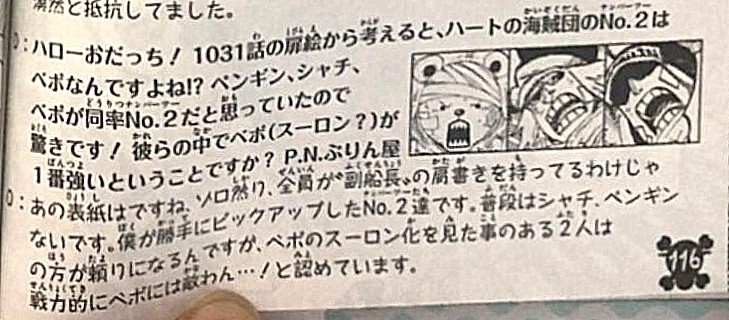 然と抵抗してました。
D:ハローおだっち! 1031話の扉絵から考えると、ハートの海賊団のNo.2は
ベポなんですよね!? ペンギン、シャチ、
ベポが同率No.2だと思っていたので
驚きです! 彼らの中でベポ(スーロン?)が
1番強いということですか? P.N.ぷりん屋
O:あの表紙はですね、ゾロ然り、全員が“副船長”の肩書きを持ってるわけじゃ
ないです。僕が勝手にピックアップしたNo.2達です。普段はシャチ、ペンギン
の方が頼りになるんですが、ベポのスーロン化を見た事のある2人は
戦力的にベポには敵わん…!と認めています。
116